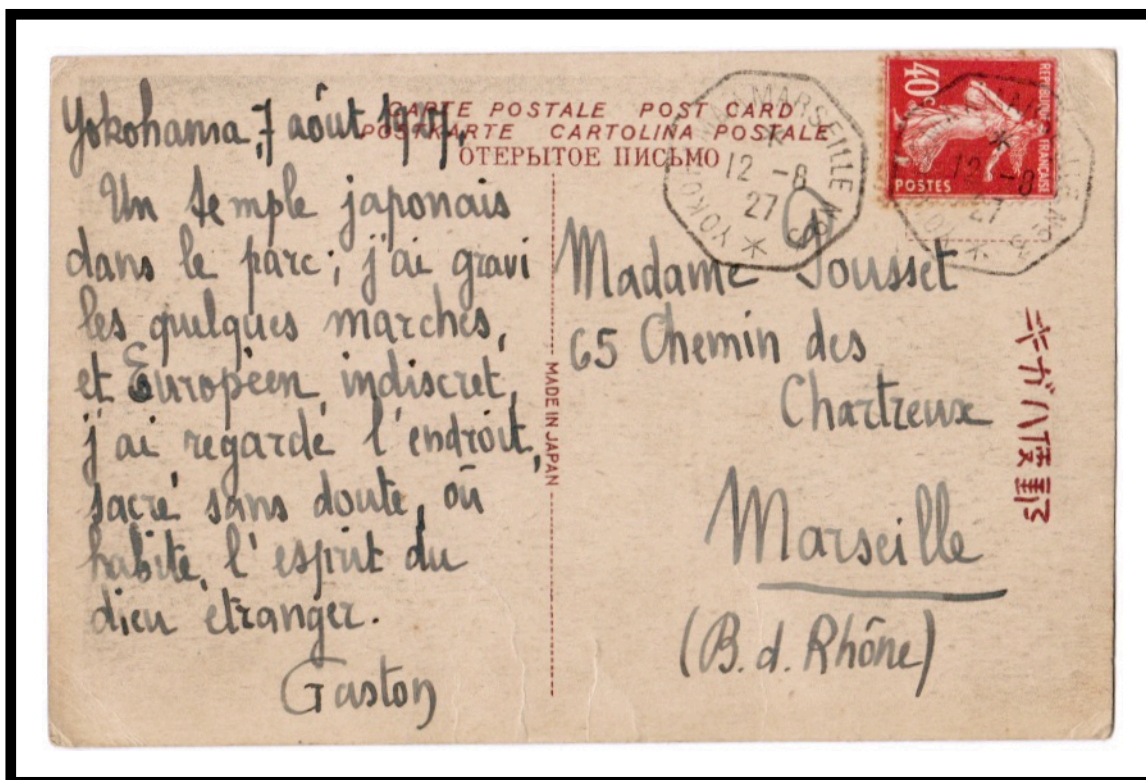 CARTE POSTALE POST CARD
POSTKARTE CARTOLINA POSTALE
ОТЕРЫТОЕ ПИСЬМО
Yokohama, 7 août 1927.
Un temple japonais
dans le parc; j'ai gravi
les quelques marches,
et Européen indiscret,
j'ai regardé l'endroit,
sacré sans doute, où
habite, l'esprit du
dieu étranger.
Gaston
MADE IN JAPAN
YOKOHAMA MARSEILLE Nº
12 -8
27
40c
REPUBLIQUE FRANÇAISE
POSTES
12 -8
27
Madame Jousset
65 Chemin des
Chartreux
Marseille
(B. d. Rhône)